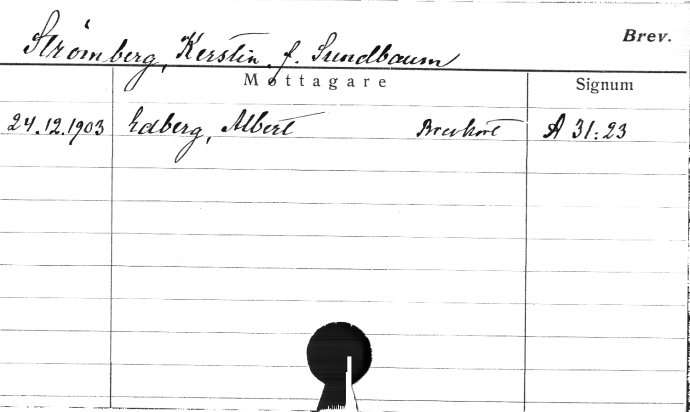 Brev.
Strömberg, Kerstin f. Sundbaum
Mottagare Signum
24.12.1903 Edberg, Albert Brevkort A 31:23